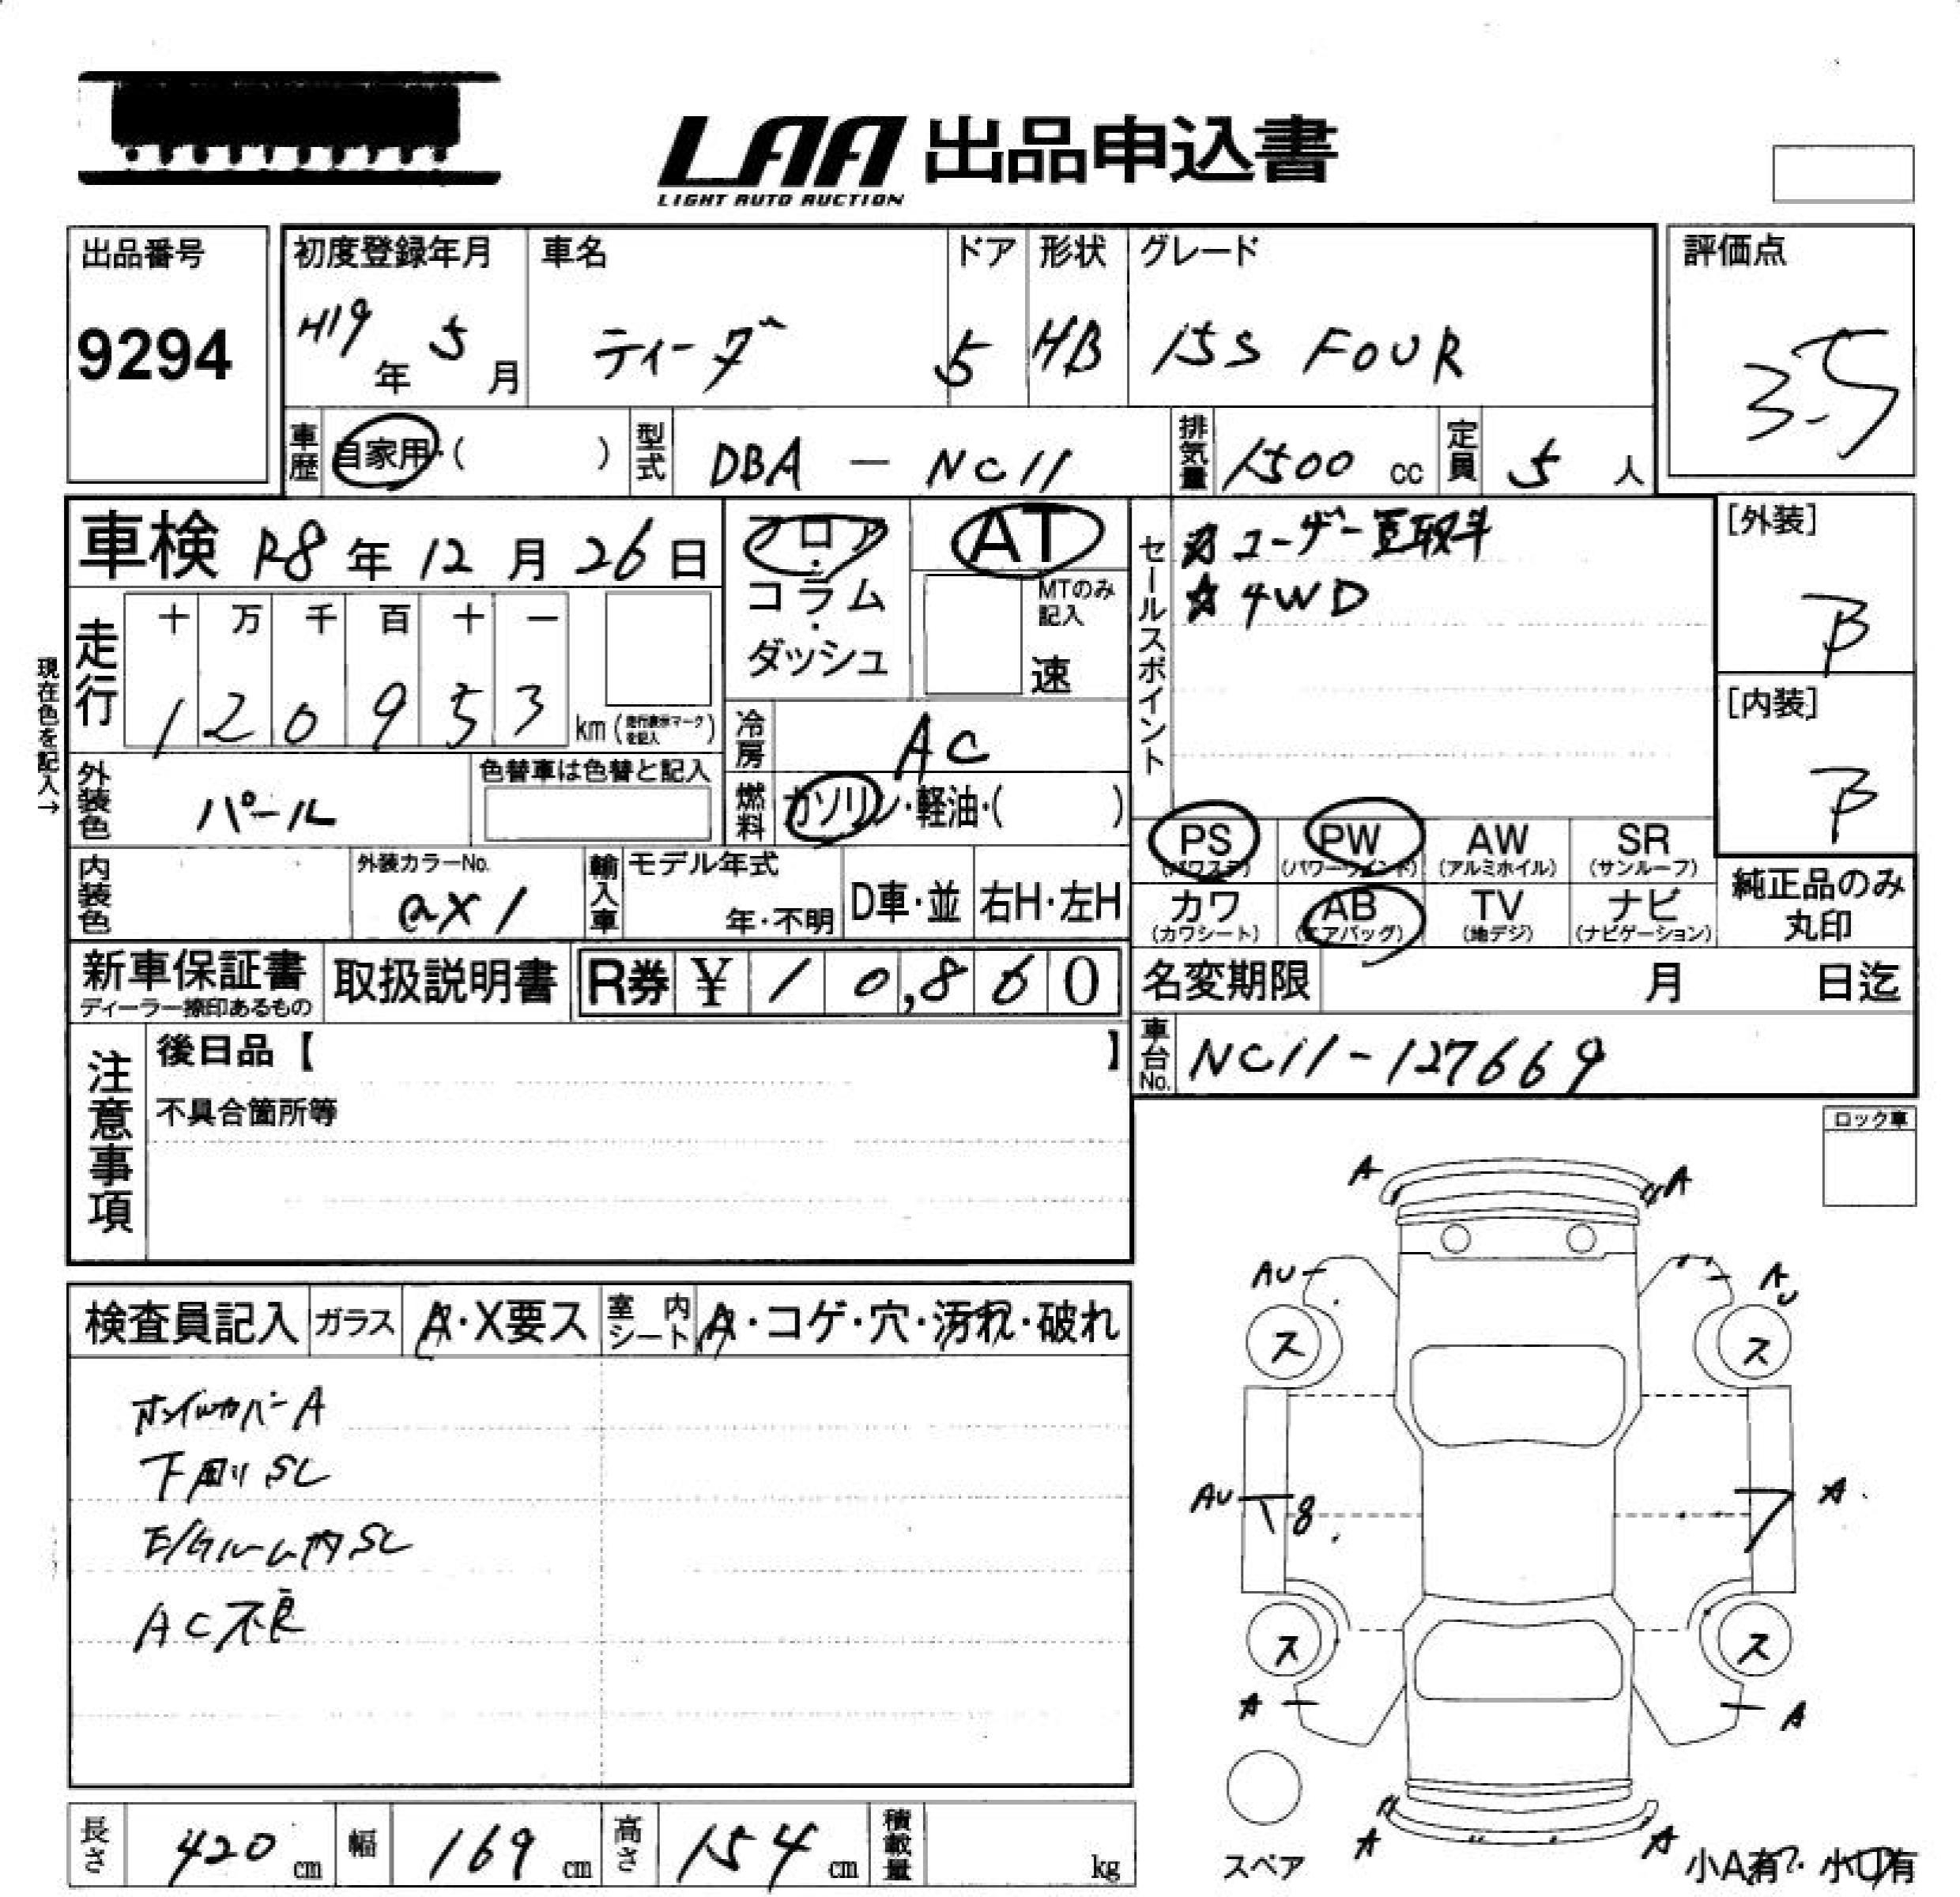 LAA 出品申込書
LIGHT AUTO AUCTION
出品番号
9294
初度登録年月
H19年 5月
車名
ティーダ
ドア
5
形状
HB
グレード
15S FOUR
評価点
3.5
車歴
自家用・( )
型式
DBA - NC11
排気量
1500 cc
定員
5 人
車検 R8年 12月 26日
走行
十 万 千 百 十 一
1 2 0 9 5 3 km (走行表示マークを記入)
現在色を記入→
フロア・コラム・ダッシュ
AT
MTのみ記入
速
冷房
AC
燃料
ガソリン・軽油・( )
外装色
パール
色替車は色替と記入
内装色
外装カラーNo.
QX1
輸入車
モデル年式
年・不明
D車・並
右H・左H
セールスポイント
☆ユーザー買取車
☆4WD
[外装]
B
[内装]
B
PS (パワステ)
PW (パワーウインド)
AW (アルミホイル)
SR (サンルーフ)
カワ (カワシート)
AB (エアバッグ)
TV (地デジ)
ナビ (ナビゲーション)
純正品のみ丸印
新車保証書
ディーラー捺印あるもの
取扱説明書
R券 ¥ 10,860
名変期限 月 日迄
車台No.
NC11-127669
注意事項
後日品【 】
不具合箇所等
ロック車
検査員記入
ガラス
A・X要ス
室内シート
A・コゲ・穴・汚れ・破れ
ホイルカバーA
下廻りSC
E/Gルーム内SC
AC不良
A A
AU AU
ス ス
AU 18 7 A
ス ス
A A
A A
スペア
小A有・小U有
長さ 420 cm
幅 169 cm
高さ 154 cm
積載量 kg